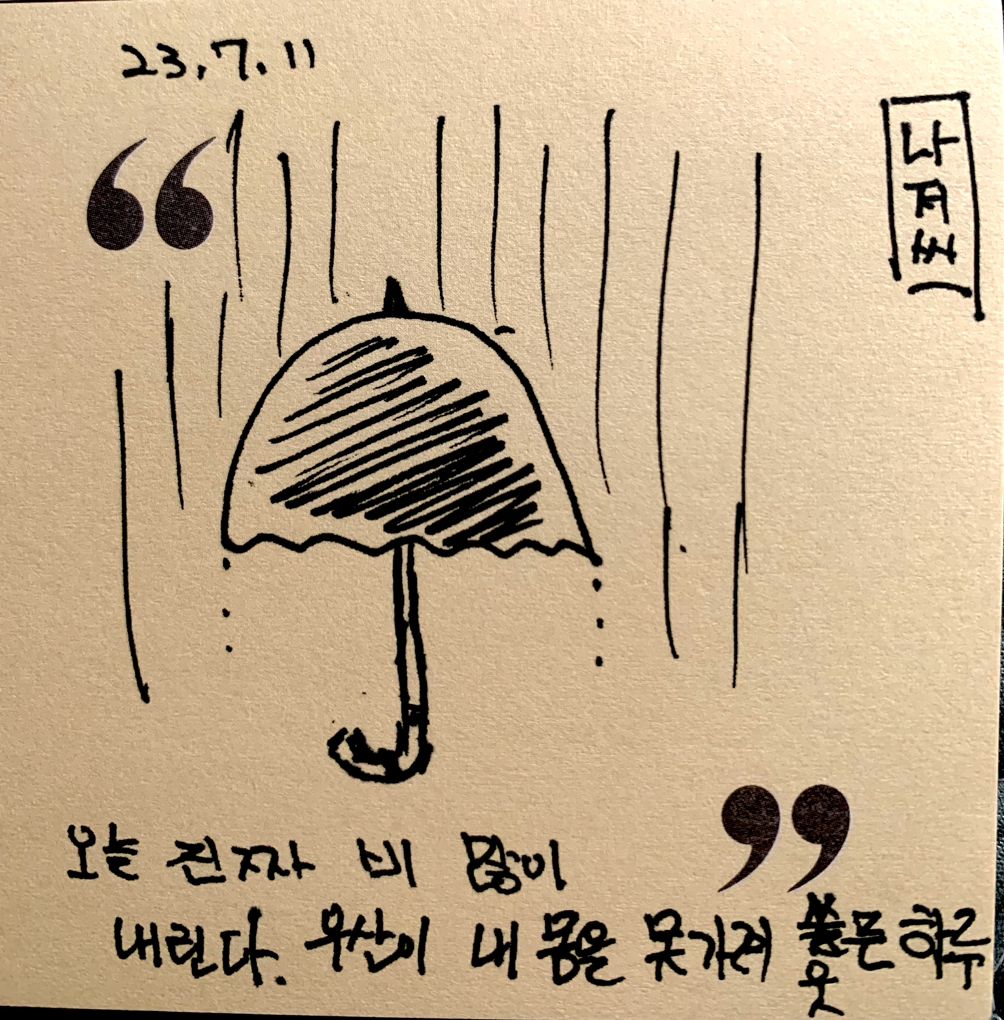 23.7.11
“
오늘 진짜 비 많이
”
내린다. 우산이 내 몸을 못가려 문 하루